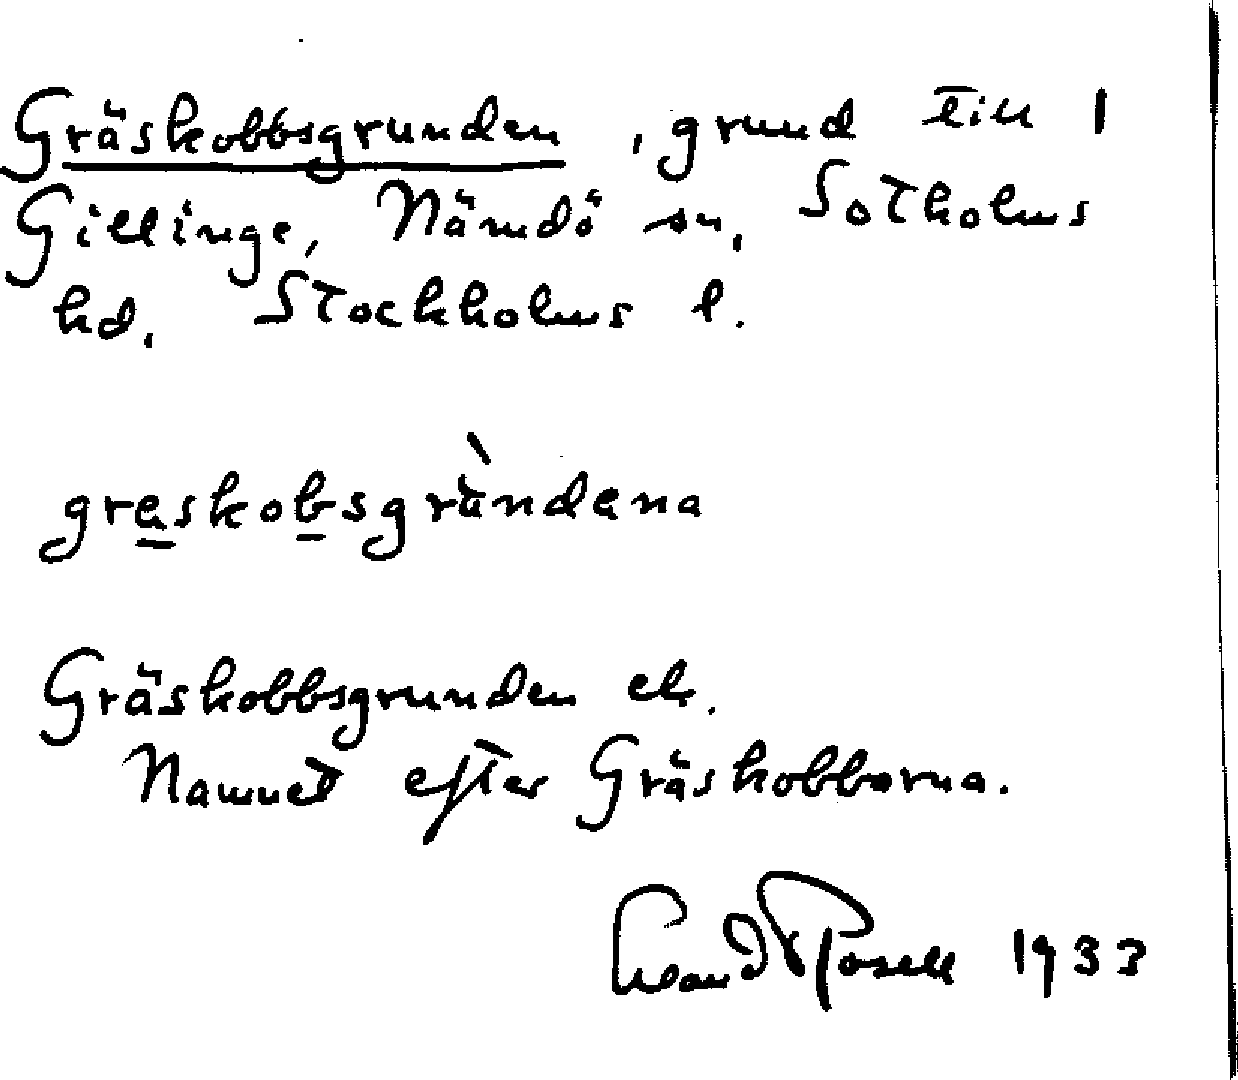 Gräskobbsgrunden, grund till 1
Gillinge, Nämdö sn, Sotholms
hd, Stockholms l.
greskobsgrùndena
Gräskobbsgrunden ek.
Namnet efter Gräskobbarna.
Rosell 1933